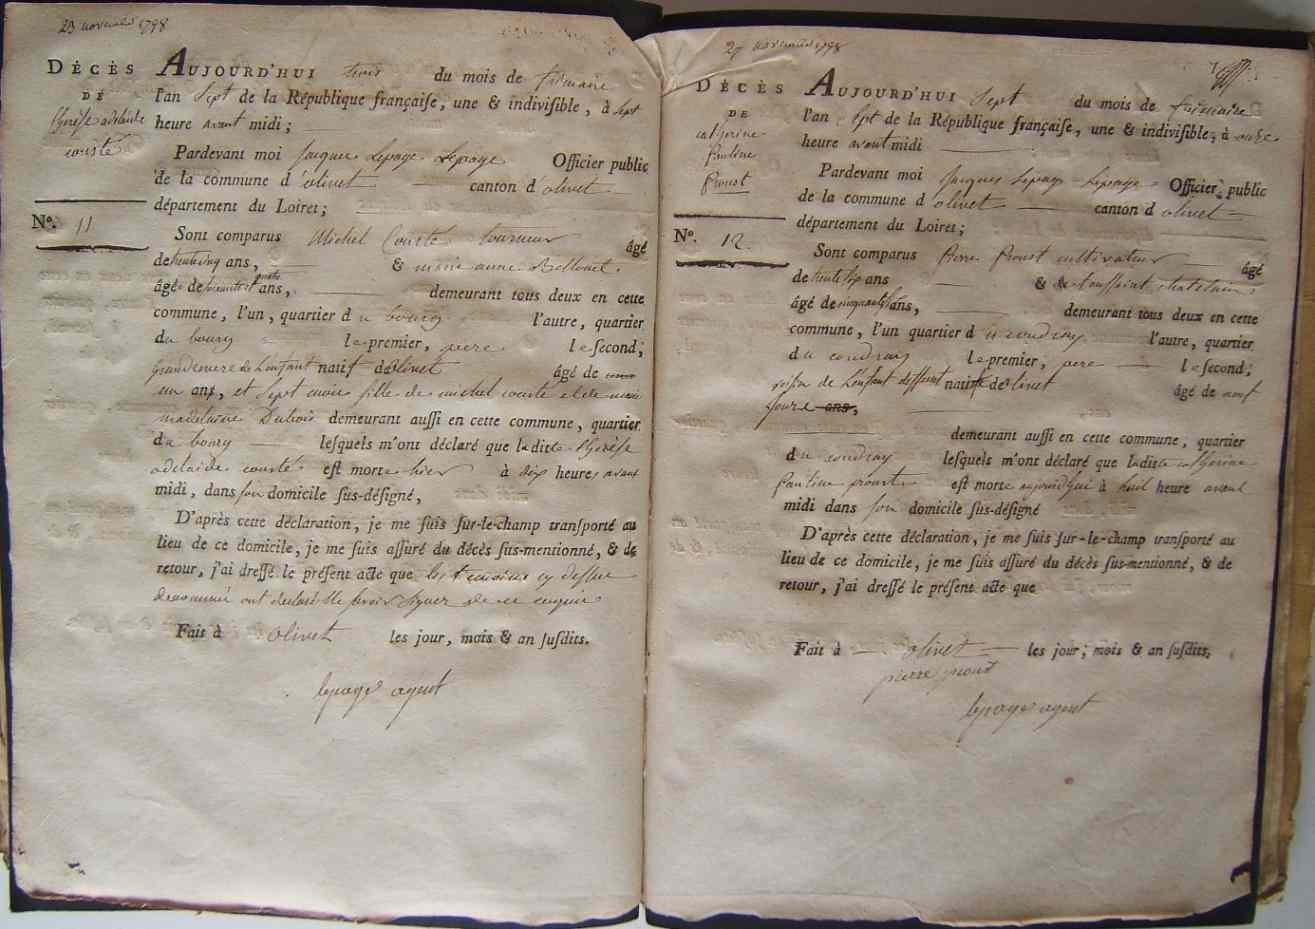 23 novembre 1798
DÉCÈS
DE
thérèse adelaide
courté
N°. 11
AUJOURD'HUI trois du mois de frimaire
l'an Sept de la République françaiſe, une & indiviſible, à sept
heure avant midi ;
Pardevant moi Jacques Lepage Lepage Officier public
de la commune d'olivet canton d'olivet
département du Loiret ;
Sont comparus Michel Courté tourneur âgé
de trente cinq ans, & marie anne
âgé de ans, demeurant tous deux en cette
commune, l'un, quartier du bourg l'autre, quartier
du bourg le premier, pere le ſecond ;
grand mere de L'enfant natif d'olivet âgé de
un an, et Sept mois fille de michel courté et de marie
madelaine Dubois demeurant auſſi en cette commune, quartier
du bourg leſquels m'ont déclaré que ladite thérèse
adelaide courté eſt morte hier à dix heures avant
midi, dans son domicile ſus-déſigné,
D'après cette déclaration, je me ſuis ſur-le-champ tranſporté au
lieu de ce domicile, je me ſuis aſſuré du décès ſus-mentionné, & de
retour, j'ai dreſſé le préſent acte que les temoins cy dessus
denommé ont declaré ne savoir signer de ce enquis
Fait à olivet les jour, mois & an ſuſdits.
lepage agent
27 novembre 1798
DÉCÈS
DE
catherine
pauline
Proust
N°. 12
AUJOURD'HUI Sept du mois de frimaire
l'an Sept de la République françaiſe, une & indiviſible, à onze
heure avant midi
Pardevant moi Jacques Lepage Lepage Officier public
de la commune d'olivet canton d'olivet
département du Loiret ;
Sont comparus Pierre Proust cultivateur âgé
de trente ans & de toussaint chatelain
âgé de ans, demeurant tous deux en cette
commune, l'un quartier du coudray l'autre, quartier
du coudray le premier, pere le ſecond ;
voisin de L'enfant deffunt natif d'olivet âgé de neuf
jours ans,
demeurant auſſi en cette commune, quartier
du coudray leſquels m'ont déclaré que ladite catherine
pauline proust eſt morte aujourd'hui à huit heure avant
midi dans son domicile ſus-déſigné
D'après cette déclaration, je me ſuis ſur-le-champ tranſporté au
lieu de ce domicile, je me ſuis aſſuré du décès ſus-mentionné, & de
retour, j'ai dreſſé le préſent acte que
Fait à olivet les jour, mois & an ſuſdits.
pierre prout
lepage agent